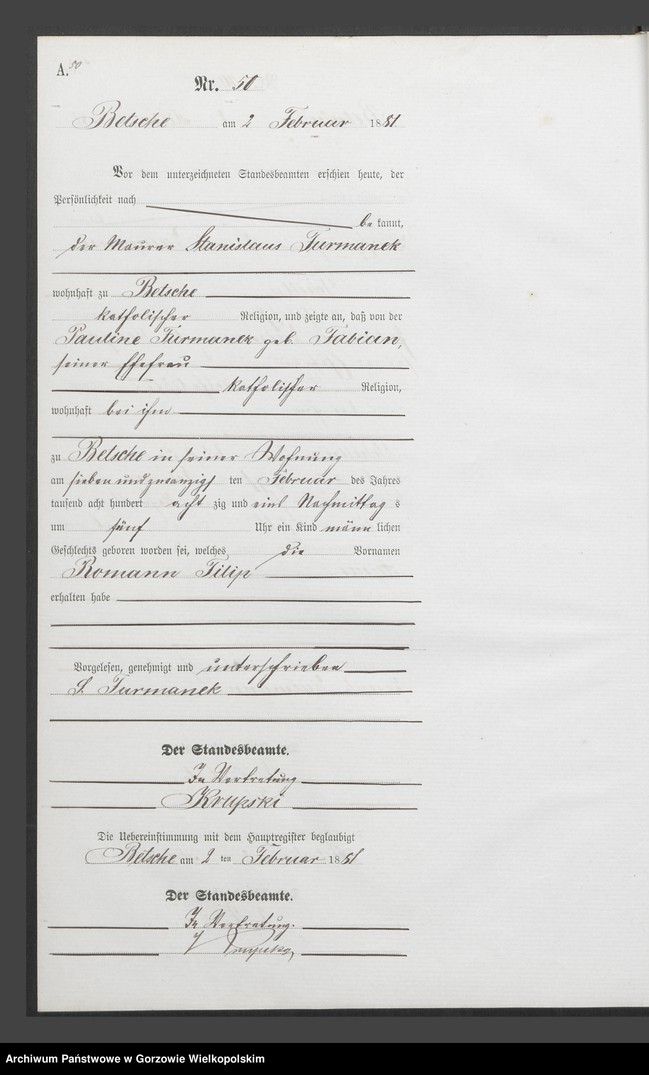 A. 50
Nr. 50
Betsche am 2 Februar 1881
Vor dem unterzeichneten Standesbeamten erschien heute, der
Persönlichkeit nach
be kannt,
der Maurer Stanislaus Furmanek
wohnhaft zu Betsche
katholischer Religion, und zeigte an, daß von der
Pauline Furmanek geb. Fabian,
seiner Ehefrau
katholischer Religion,
wohnhaft bei ihm
zu Betsche in seiner Wohnung
am sieben und zwanzigs ten Februar des Jahres
tausend acht hundert acht zig und eins Nachmittag s
um fünf Uhr ein Kind männ lichen
Geschlechts geboren worden sei, welches die Vornamen
Romann Filip
erhalten habe
Vorgelesen, genehmigt und unterschrieben
S. Furmanek
Der Standesbeamte.
In Vertretung
Krupski
Die Uebereinstimmung mit dem Hauptregister beglaubigt
Betsche am 2 ten Februar 1881
Der Standesbeamte.
In Vertretung.
Archiwum Państwowe w Gorzowie Wielkopolskim